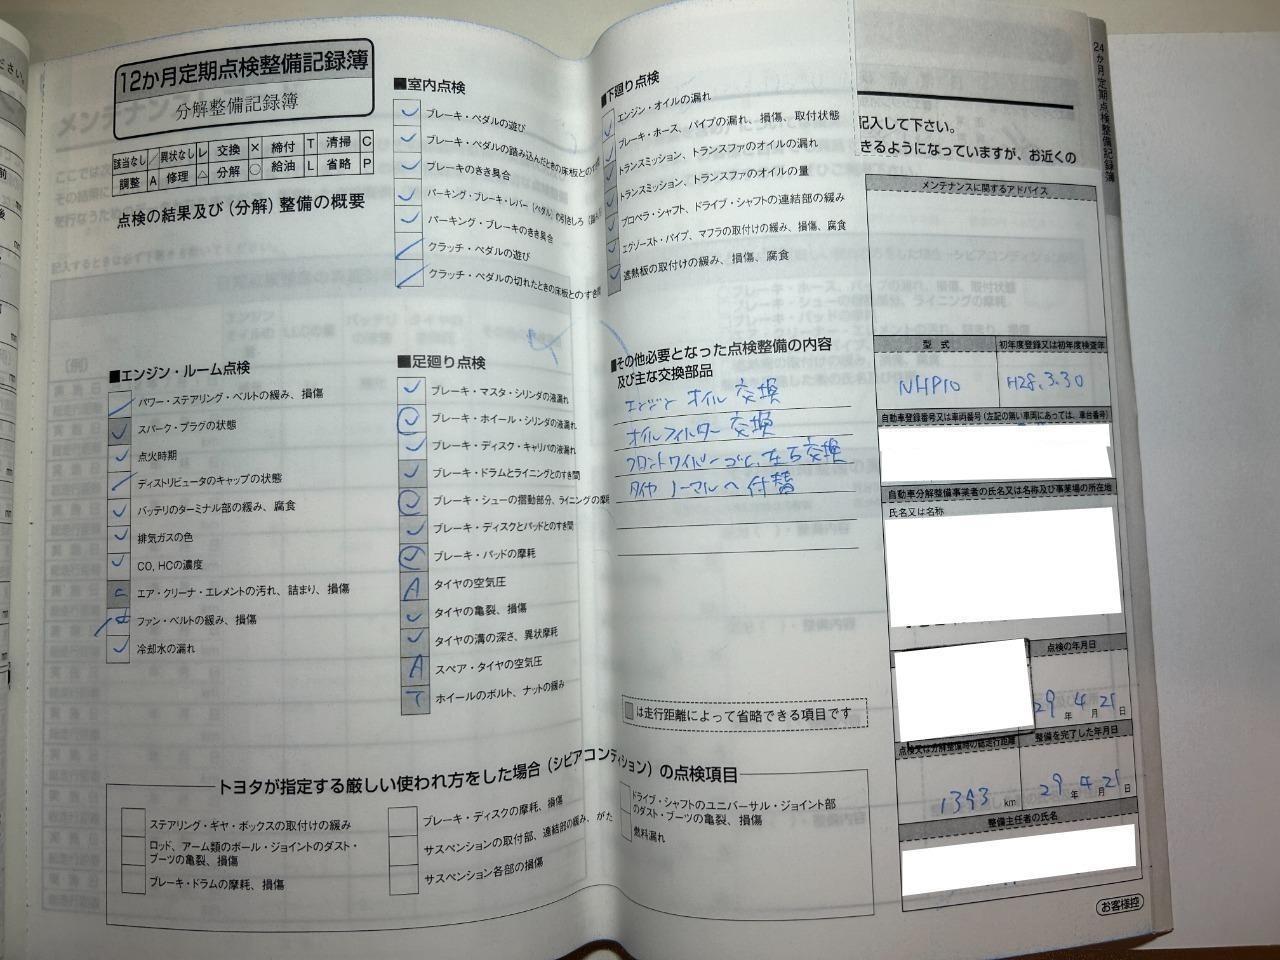 24か月定期点検整備記録簿
12か月定期点検整備記録簿
分解整備記録簿
該当なし ／ 異状なし レ 交換 × 締付 T 清掃 C
調整 A 修理 △ 分解 ○ 給油 L 省略 P
点検の結果及び(分解)整備の概要
■室内点検
ブレーキ・ペダルの遊び
ブレーキ・ペダルの踏み込んだときの床板とのすき間
ブレーキのきき具合
パーキング・ブレーキ・レバー(ペダル)の引きしろ
パーキング・ブレーキのきき具合
クラッチ・ペダルの遊び
クラッチ・ペダルの切れたときの床板とのすき間
■下廻り点検
エンジン・オイルの漏れ
ブレーキ・ホース、パイプの漏れ、損傷、取付状態
トランスミッション、トランスファのオイルの漏れ
トランスミッション、トランスファのオイルの量
プロペラ・シャフト、ドライブ・シャフトの連結部の緩み
エグゾースト・パイプ、マフラの取付けの緩み、損傷、腐食
遮熱板の取付けの緩み、損傷、腐食
記入して下さい。
きるようになっていますが、お近くの
メンテナンスに関するアドバイス
■エンジン・ルーム点検
パワー・ステアリング・ベルトの緩み、損傷
スパーク・プラグの状態
点火時期
ディストリビュータのキャップの状態
バッテリのターミナル部の緩み、腐食
排気ガスの色
CO, HCの濃度
エア・クリーナ・エレメントの汚れ、詰まり、損傷
ファン・ベルトの緩み、損傷
冷却水の漏れ
■足廻り点検
ブレーキ・マスタ・シリンダの液漏れ
ブレーキ・ホイール・シリンダの液漏れ
ブレーキ・ディスク・キャリパの液漏れ
ブレーキ・ドラムとライニングとのすき間
ブレーキ・シューの摺動部分、ライニングの摩耗
ブレーキ・ディスクとパッドとのすき間
ブレーキ・パッドの摩耗
A タイヤの空気圧
タイヤの亀裂、損傷
タイヤの溝の深さ、異状摩耗
A スペア・タイヤの空気圧
T ホイールのボルト、ナットの緩み
■その他必要となった点検整備の内容
及び主な交換部品
エンジン オイル 交換
オイルフィルター 交換
フロントワイパーゴム左右交換
タイヤ ノーマルへ 付替
は走行距離によって省略できる項目です
型式 初年度登録又は初年度検査年
NHP10 H28.3.30
自動車登録番号又は車両番号(左記の無い車両にあっては、車台番号)
自動車分解整備事業者の氏名又は名称及び事業場の所在地
氏名又は名称
点検の年月日
29年4月21日
点検又は分解整備時の総走行距離 整備を完了した年月日
1393 km 29年4月21日
整備主任者の氏名
トヨタが指定する厳しい使われ方をした場合(シビアコンディション)の点検項目
ステアリング・ギヤ・ボックスの取付けの緩み
ロッド、アーム類のボール・ジョイントのダスト・
ブーツの亀裂、損傷
ブレーキ・ドラムの摩耗、損傷
ブレーキ・ディスクの摩耗、損傷
サスペンションの取付部、連結部の緩み、がた
サスペンション各部の損傷
ドライブ・シャフトのユニバーサル・ジョイント部
のダスト・ブーツの亀裂、損傷
燃料漏れ
お客様控